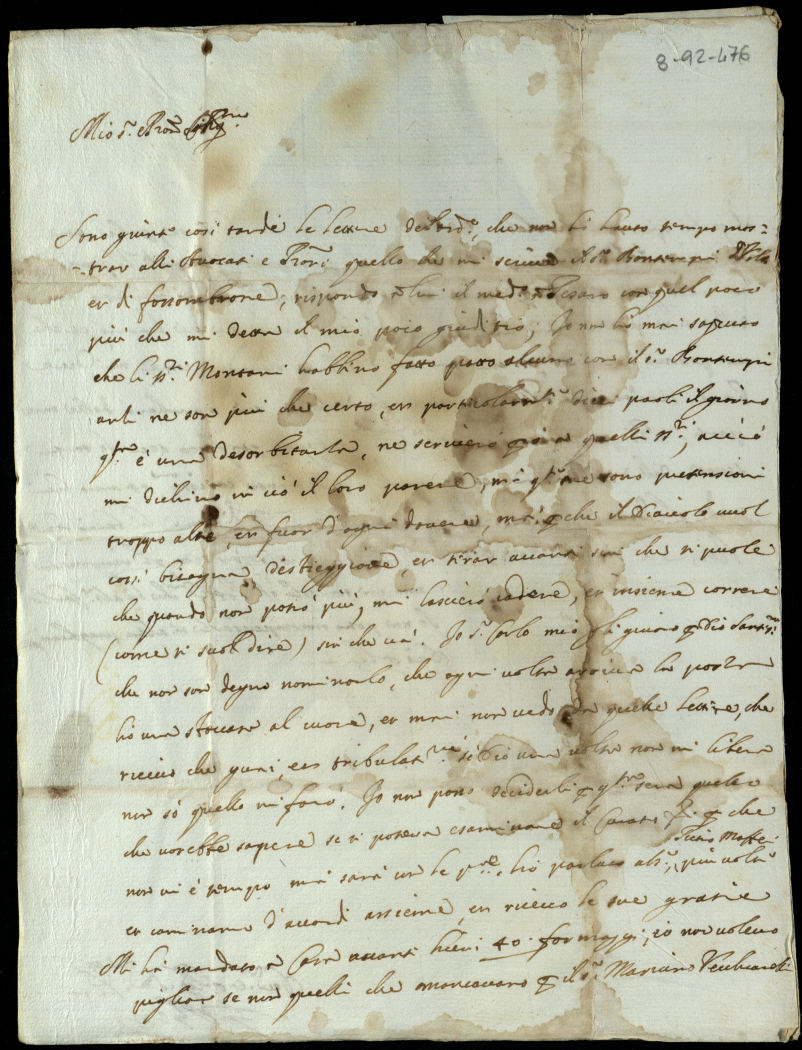 8-92-476
Mio s.r e Pron
Sono giunte così tarde le lettere che non hò hauto tempo mos=
=trar alli Auocati e Prori quello che mi scriue il s.r Bontempi
et di fossombrone, rispondo il med.o con quel poco
più che mi detta il mio poco giuditio, Io non hò mai saputo
che li ss.ri Montani habbino fatto patto alcuno con il s.r Bontempi
anzi ne son più che certo, et particolarm.te dieci paoli il giorno
q.to è una desorbitanza, ne scriuerò a quelli ss.ri, acciò
mi dichino in ciò il loro parere, mà q.te mi sono pretensioni
troppo alte, et fuor d'ogni douere, mà che il Diauolo uuol
così bisogna destreggiare, et tirar auanti sin che si puole
che quando non potrò più, mi lascierò cadere, et insieme correre
(come si suol dire) sin che uà. Io s.r Carlo mio gli giuro Dio
che non son degno nominarlo, che ogni uolta arriua la posta
hò una stoccata al cuore, et mai non uedo quelle lettere, che
riceuo che guai, et tribulat.ni se Dio una uolta non mi libera
non sò quello mi farò. Io non posso q.ta sera quello
che vorebbe sapere se si poteua esaminare il Curato che
non ui è tempo mà sarà con le p.me, hò parlato al s.r Maffei più uolte
et caminamo d'accordi assieme, et riceuo le sue gratie
Mi hà mandato a Casa auanti hieri 40 formaggi, io non uoleuo
pigliar se non quelli che mancauano il s.r Mariano Vecchiarelli